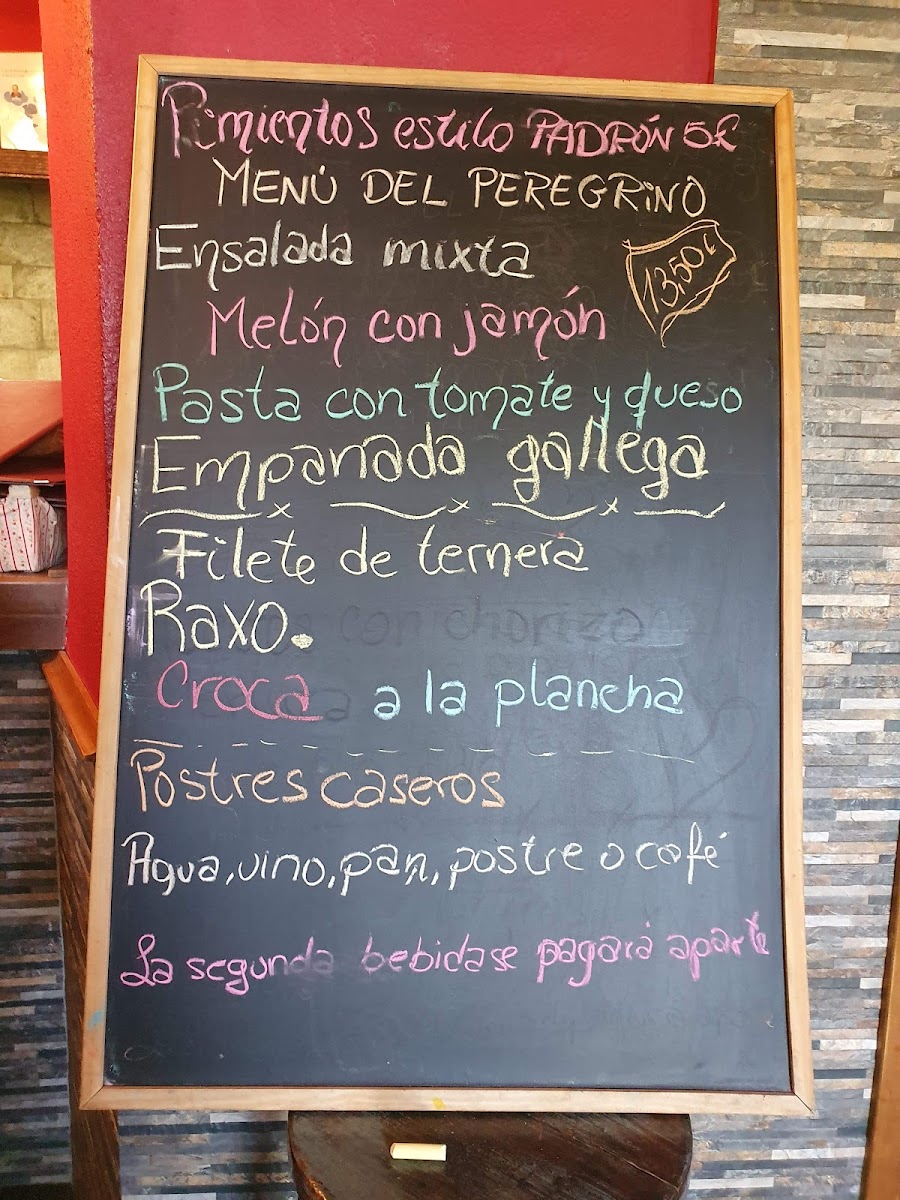 Pimientos estilo PADRÓN 5€
MENÚ DEL PEREGRINO
Ensalada mixta
13,50€
Melón con jamón
Pasta con tomate y queso
Empanada gallega
Filete de ternera
Raxo.
Croca a la plancha
Postres caseros
Agua, vino, pan, postre o café
La segunda bebida se pagará aparte